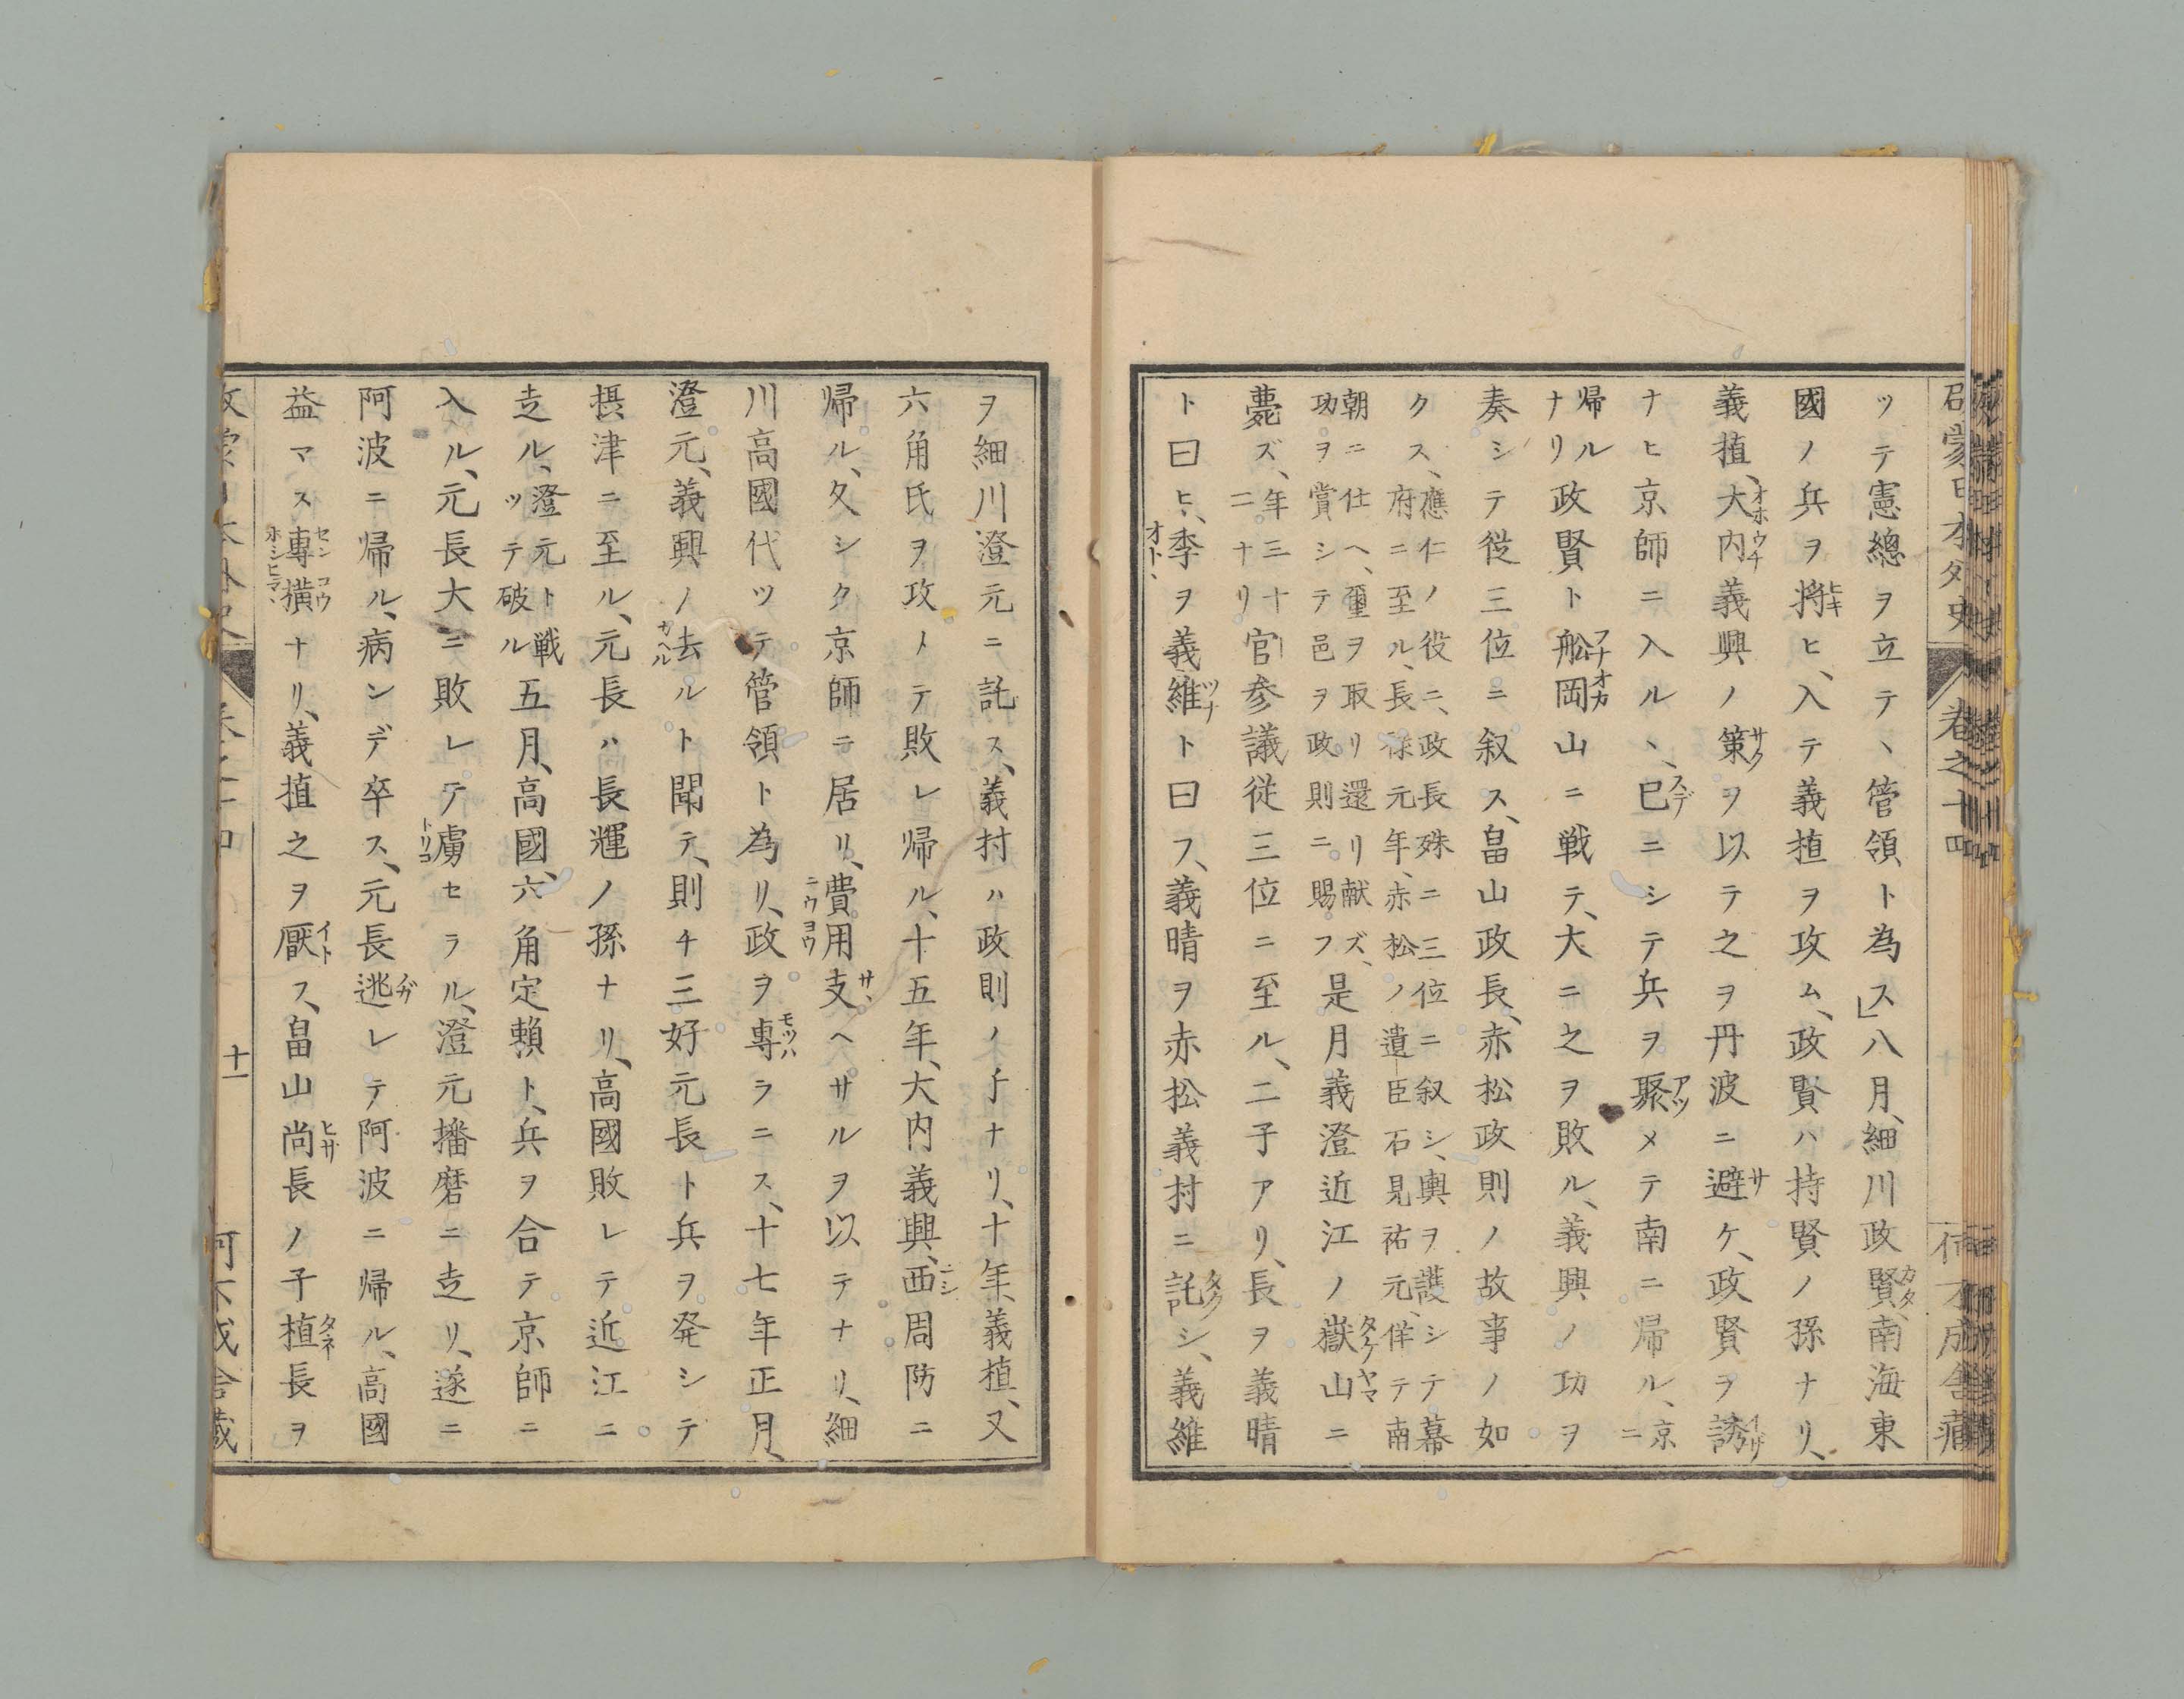 啓蒙日本外史 巻之十四
ツテ憲總ヲ立テヽ管領ト為ス」八月、細川政賢南海東
國ノ兵ヲ将ヒ、入テ義植ヲ攻ム、政賢ハ持賢ノ孫ナリ、
義植、大内義興ノ策ヲ以テ之ヲ丹波ニ避ケ、政賢ヲ誘
ナヒ京師ニ入ルヽ、已ニシテ兵ヲ聚メテ南ニ帰ル、京ニ
帰ルナリ政賢ト舩岡山ニ戦テ、大ニ之ヲ敗ル、義興ノ功ヲ
奏シテ従三位ニ叙ス、畠山政長、赤松政則ノ故事ノ如
クス、應仁ノ役ニ、政長殊ニ三位ニ叙シ、輿ヲ護シテ幕
府ニ至ル、長禄元年、赤松ノ遺臣石見祐元、佯テ南
朝ニ仕ヘ、璽ヲ取リ還リ献ズ、
功ヲ賞シテ邑ヲ政則ニ賜フ
是月義澄近江ノ嶽山ニ
薨ズ、年三十二ナリ官参議従三位ニ至ル、二子アリ、長ヲ義晴
ト曰ヒ、季ヲ義維ト曰フ、義晴ヲ赤松義村ニ託シ、義維
ヲ細川澄元ニ託ス、義村ハ政則ノ子ナリ、十年、義植、又
六角氏ヲ攻トノテ敗レ帰ル、十五年、大内義興、西周防ニ
帰ル、久シク京師ニ居リ、費用支ヘサルヲ以テナリ、細
川高國代ツテ管領ト為リ、政ヲ專ラニス、十七年正月、
澄元、義興ノ去ルト聞テ、則チ三好元長ト兵ヲ発シテ
摂津ニ至ル、元長ハ長輝ノ孫ナリ、高國敗レテ近江ニ
走ル、澄元ト戦ツテ破ル五月、高國、六角定頼ト、兵ヲ合テ京師ニ
入ル、元長大ニ敗レテ虜セラル、澄元播磨ニ走リ、遂ニ
阿波ニ帰ル、病ンデ卒ス、元長逃レテ阿波ニ帰ル、高國
益マス專横ナリ、義植之ヲ厭フ、畠山尚長ノ子植長ヲ
十一